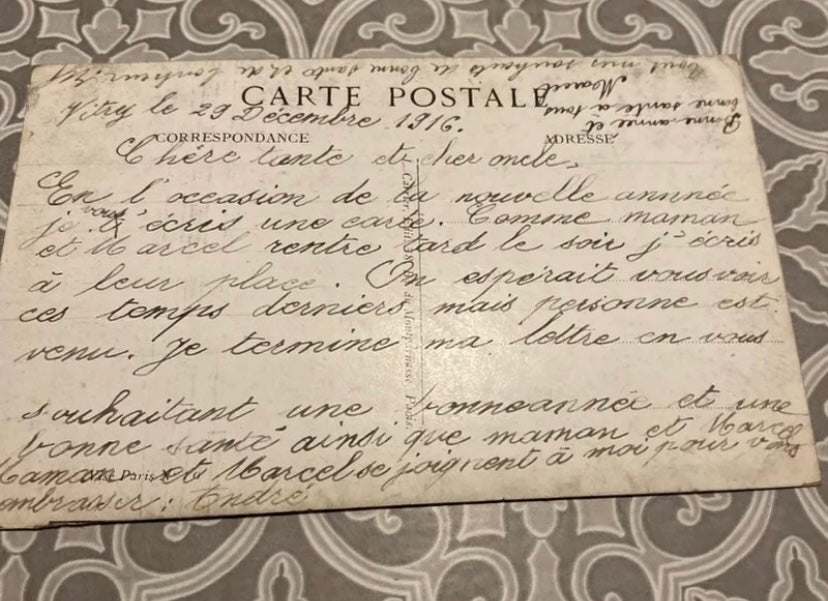 Tous mes souhaits de bonne santé et de bonheur
Bonne année et
bonne santé à tous
Marcel
CARTE POSTALE
Vitry le 29 Décembre 1916.
CORRESPONDANCE
ADRESSE
Chére tante et cher oncle,
En l'occasion de la nouvelle annnée
je vous écris une carte. Comme maman
et Marcel rentre tard le soir j'écris
à leur place. On espérait vous voir
ces temps derniers mais personne est
venu. Je termine ma lettre en vous
souhaitant une bonne année et une
bonne santé ainsi que maman et Marcel
Maman et Marcel se joignent à moi pour vous
embrasser : André
Paris